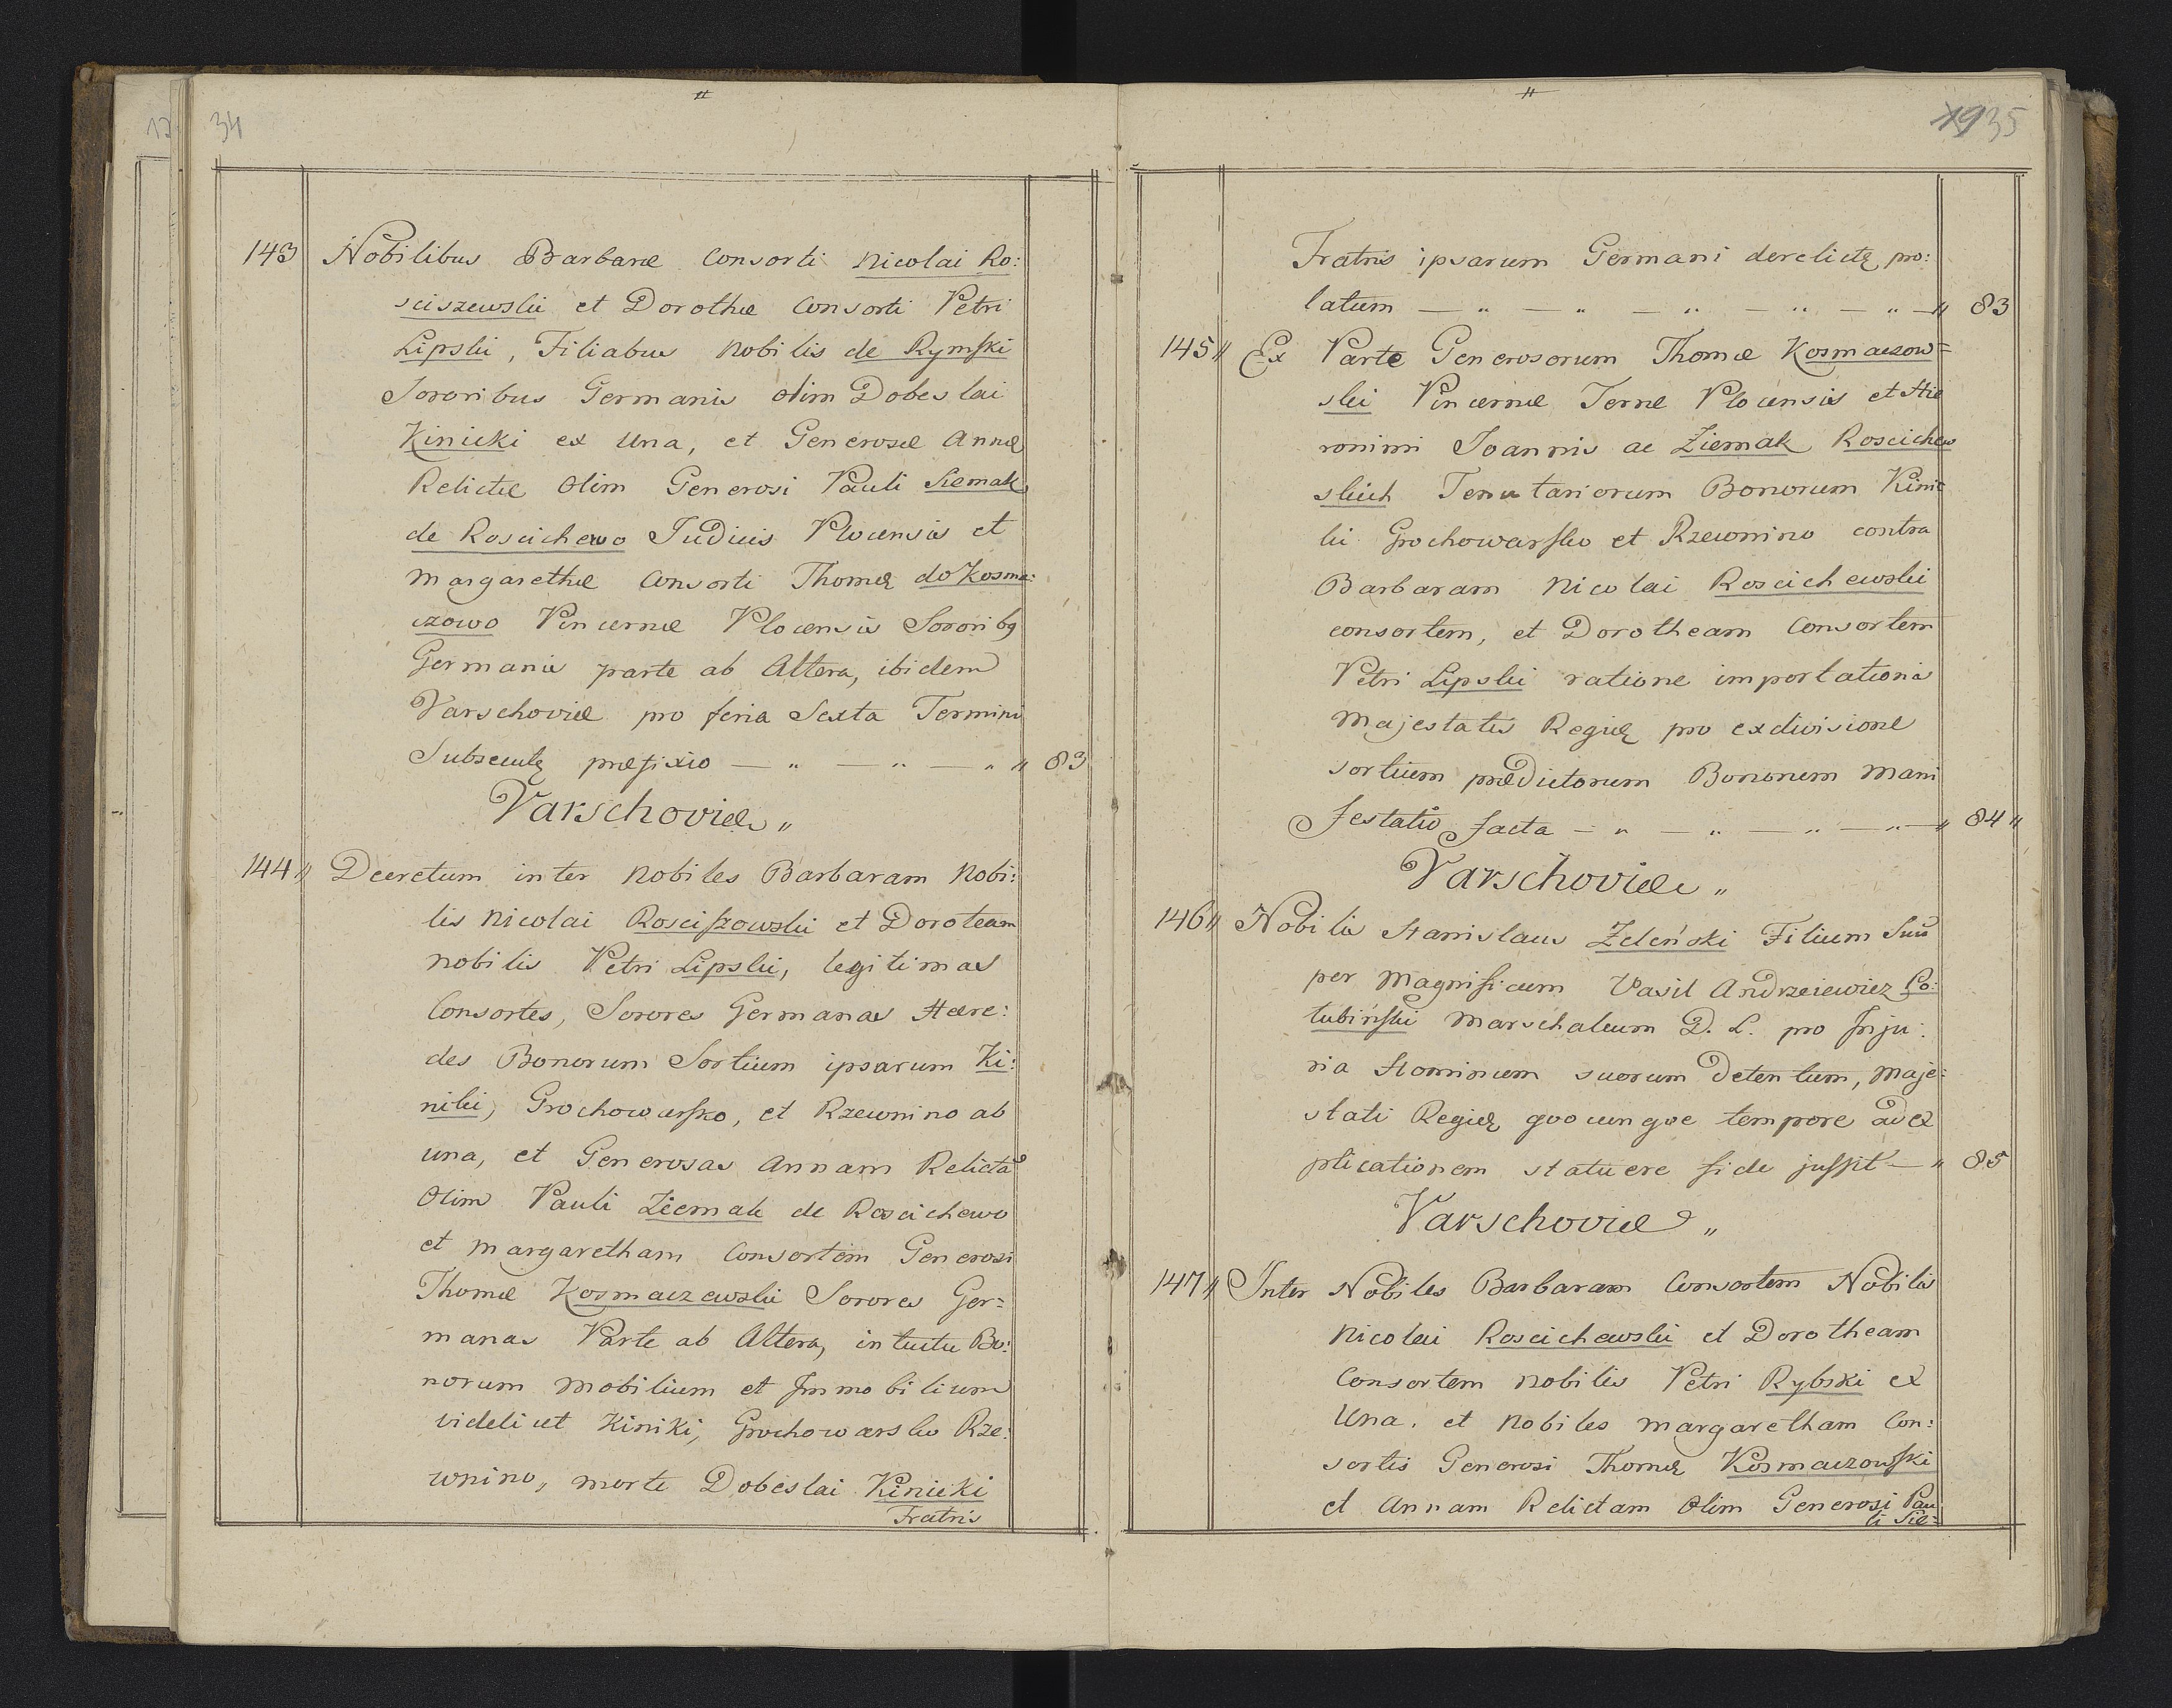 34
143 Nobilibus Barbaræ Consorti Nicolai Ro:
sciszewski et Dorotheæ Consorti Petri
Lipski, Filiabus Nobilis de Rymski
Sororibus Germanis olim Dobeslai
Kinicki ex Una, et Generosæ Annæ
Relictæ Olim Generosi Pauli Siemak
de Roscichewo Judicis Plocensis et
Margarethæ Consorti Thomæ de Kosma:
czowo Pincernæ Plocensis Sororibg
Germanis parte ab Altera, ibidem
Varschoviæ pro feria Sexta Termini
Subsecutę præfixio — „ — „ — „ „ 83
Varschoviæ „
144 „ Decretum inter Nobiles Barbaram Nobi:
lis Nicolai Rosciszowski et Doroteam
Nobilis Petri Lipski, legitimas
Consortes, Sorores Germanas Hære:
des Bonorum Sortium ipsarum Ki:
niki, Grochowarsko, et Rzewnino ab
una, et Generosas Annam Relictã
Olim Pauli Ziemak de Roscichewo
et Margaretham Consortem Generosi
Thomæ Kosmaczewski Sorores Ger=
manas Parte ab Altera, intuitu Bo:
norum Mobilium et Immobilium
videlicet Kiniki, Grochowarsko Rze:
wnino, morte Dobeslai Kinicki
Fratris
19 35
Fratris ipsarum Germani derelictę pro:
latum — „ — „ — „ — „ — „ — „ 83
145 „ Ex Parte Generosorum Thomæ Kosmaczow=
ski Pincernæ Terræ Plocensis et Hie
ronimi Joannis ac Ziemak Roscichew
skich Tenutariorum Bonorum Kinic
ki Grochowarsko et Rzewnino contra
Barbaram Nicolai Roscichewski
consortem, et Dorotheam Consortem
Petri Lipski ratione importationis
Majestatis Regiæ pro exdivisione
sortium prædictorum Bonorum Mani
festatio facta — „ — „ — „ — „ — „ 84 „
Varschoviæ „
146 „ Nobilis Stanislaus Zeleński Filium Suũ
per Magnificum Vasil Andrzeiewicz Po:
łubiński Marschalcum D. L. pro Inju:
ria Hominum suorum Detentum, Maje:
stati Regiæ qvocunqve tempore ad ex
plicationem statuere fide jussit — „ 85
Varschoviæ „
147 „ Inter Nobiles Barbaram Consortem Nobilis
Nicolai Roscichewski et Dorotheam
Consortem Nobilis Petri Rybski ex
Una. et Nobiles Margaretham Con:
sortis Generosi Thomæ Kosmaczowski
et Annam Relictam Olim Generosi Pau
li Sie=